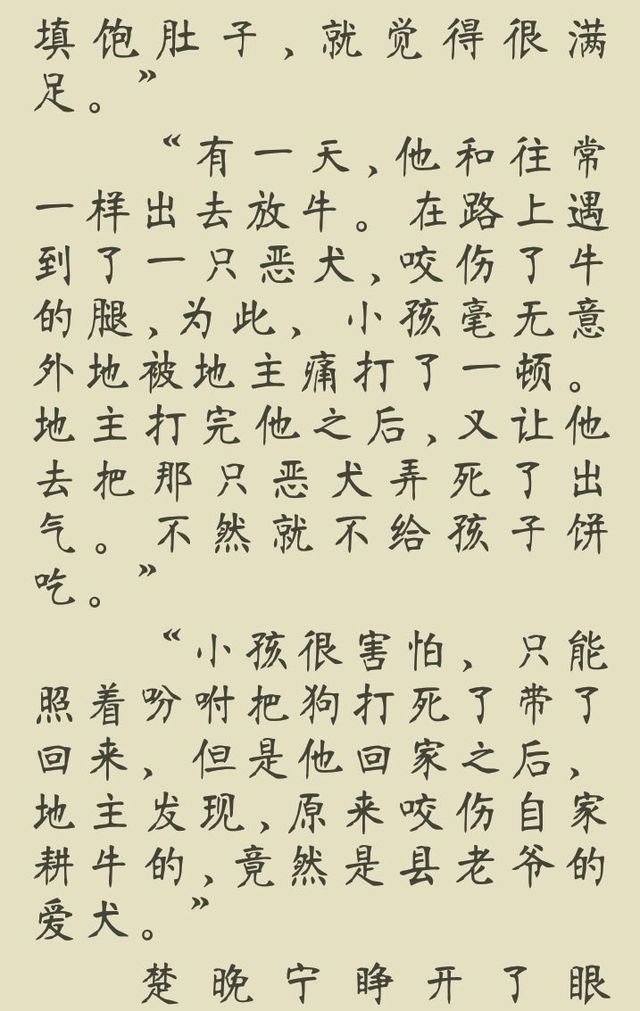 填饱肚子，就觉得很满
足。”
“有一天，他和往常
一样出去放牛。在路上遇
到了一只恶犬，咬伤了牛
的腿，为此，小孩毫无意
外地被地主痛打了一顿。
地主打完他之后，又让他
去把那只恶犬弄死了出
气。不然就不给孩子饼
吃。”
“小孩很害怕，只能
照着吩咐把狗打死了带了
回来，但是他回家之后，
地主发现，原来咬伤自家
耕牛的，竟然是县老爷的
爱犬。”
楚晚宁睁开了眼